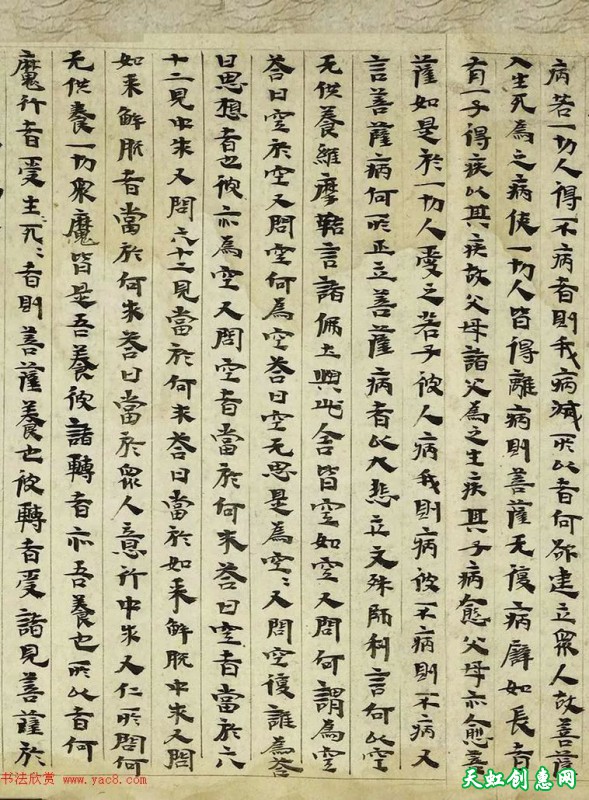 病若一切人得不病者則我病滅所以者何欲建立眾人故菩薩
入生死為之病使一切人皆得離病則菩薩无復病譬如長者
有一子得疾以其疾故父母諸父為之生疾其子病愈父母亦愈菩
薩如是於一切人愛之若子彼人病我則病彼不病則不病又
言菩薩病何所正立菩薩病者以大悲立文殊師利言何以空
无供養維摩詰言諸佛土與此舍皆空如空又問何謂為空
荅曰空於空又問空何為空荅曰空无思是為空〻又問空復誰為荅
曰思想者也彼亦為空又問空者當於何求荅曰空者當於六
十二見中求又問六十二見當於何求荅曰當於如來解脫中求又問
如來解脫者當於何求荅曰當於眾人意行中求又仁所問何
无供養一切眾魔皆是吾養彼諸轉者亦吾養也所以者何
魔行者受生死〻者則菩薩養也彼轉者受諸見菩薩於
书法欣赏 www.yac8.com
天虹创惠网